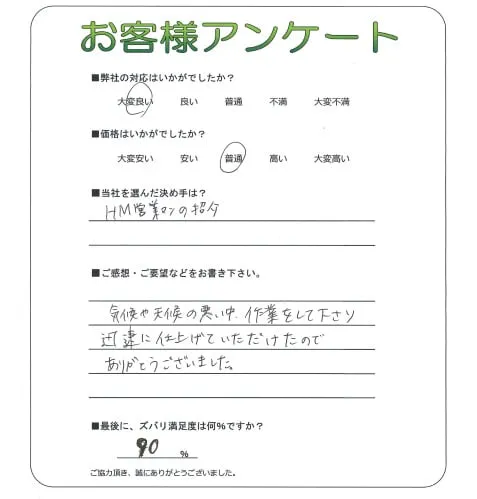 お客様アンケート
■弊社の対応はいかがでしたか?
大変良い 良い 普通 不満 大変不満
■価格はいかがでしたか?
大変安い 安い 普通 高い 大変高い
■当社を選んだ決め手は?
HM営業マンの紹介
■ご感想・ご要望などをお書き下さい。
気候や天候の悪い中、作業をして下さり
迅速に仕上げていただけたので
ありがとうございました。
■最後に、ズバリ満足度は何%ですか?
90 %
ご協力頂き、誠にありがとうございました。